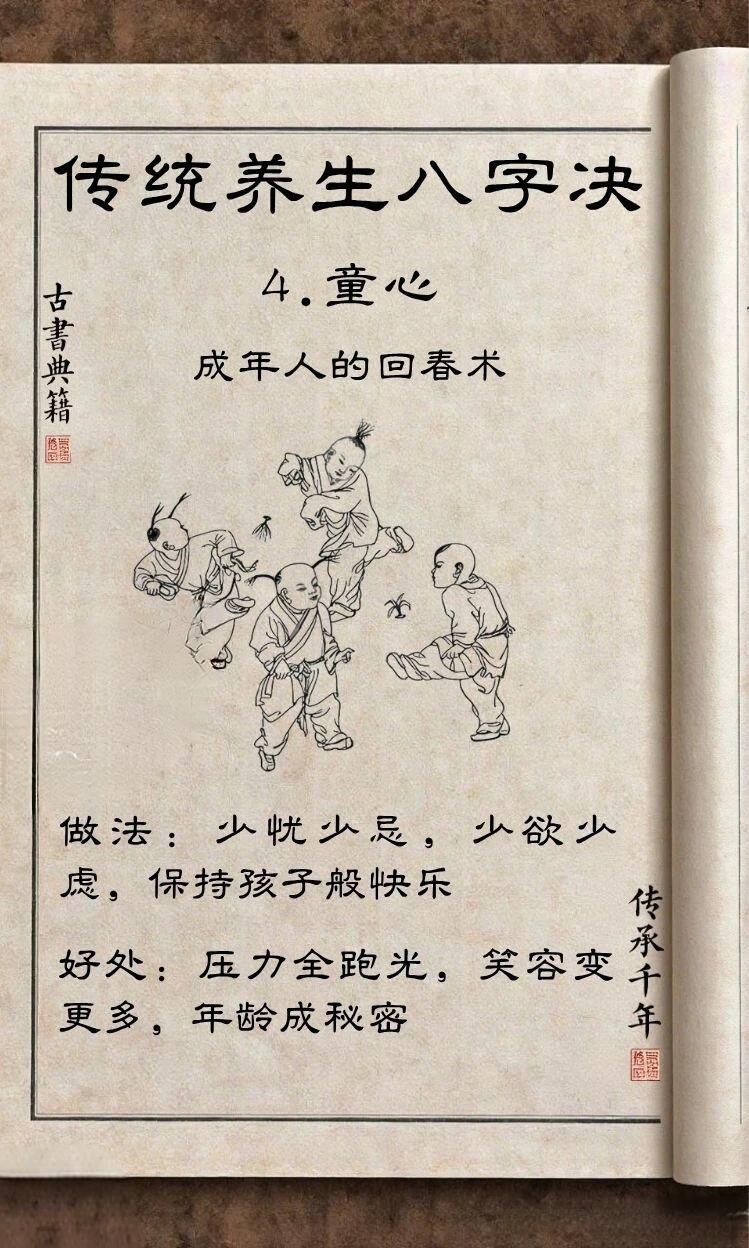 传统养生八字决
4.童心
成年人的回春术
古書典籍
做法：少忧少忌，少欲少
虑，保持孩子般快乐
好处：压力全跑光，笑容变
更多，年龄成秘密
传承千年